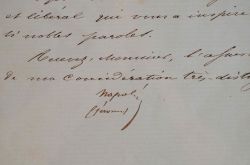 et libéral qui vous a inspiré
si nobles paroles.
Recevez, Monsieur, l'assu
de ma considération très-disting
Napol
(Jérôme)